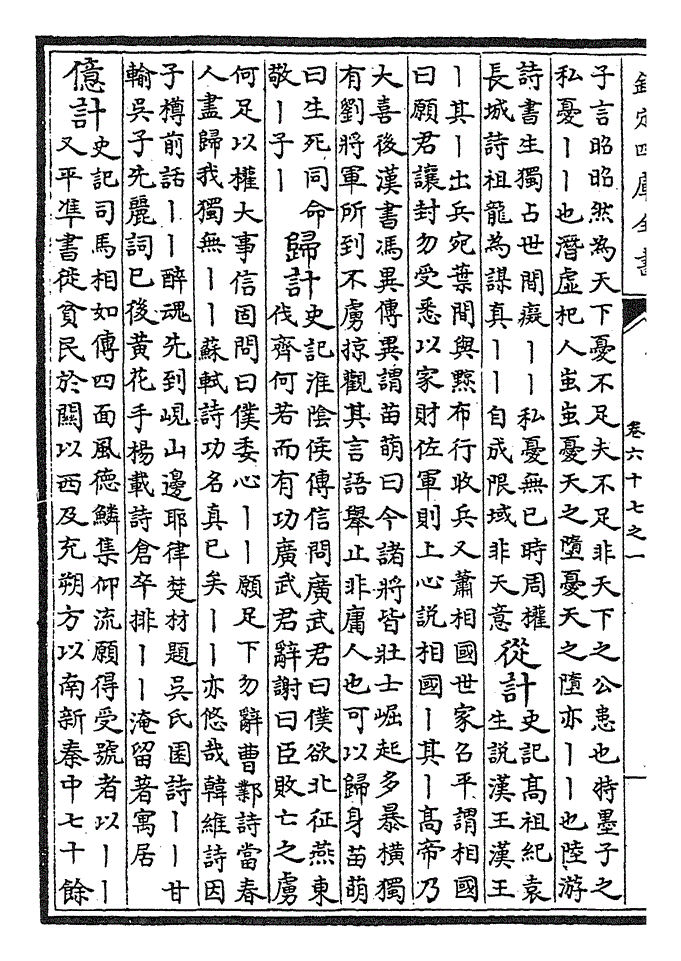 欽定四庫全書
卷六十七之一
子言昭昭然為天下憂不足夫不足非天下之公患也特墨子之
私憂丨丨也潛虚杞人蚩蚩憂天之墮憂天之墮亦丨丨也陸游
詩書生獨占世間癡丨丨私憂無已時周權
長城詩祖龍為謀真丨丨自成限域非天意
從計
史記髙祖紀袁
生說漢王漢王
丨其丨出兵宛葉間與黥布行收兵又蕭相國世家召平謂相國
曰願君讓封勿受悉以家財佐軍則上心説相國丨其丨髙帝乃
大喜後漢書馮異傳異謂苗萌曰今諸將皆壯士崛起多暴横獨
有劉將軍所到不虜掠觀其言語舉止非庸人也可以歸身苗萌
曰生死同命
敬丨子丨
歸計
史記淮陰侯傳信問廣武君曰僕欲北征燕東
伐齊何若而有功廣武君辭謝曰臣敗亡之虜
何足以權大事信固問曰僕委心丨丨願足下勿辭曹鄴詩當春
人盡歸我獨無丨丨蘇軾詩功名真已矣丨丨亦悠哉韓維詩因
子樽前話丨丨醉魂先到峴山邊耶律楚材題吳氏園詩丨丨甘
輸吳子先麗詞已後黃花手楊載詩倉卒排丨丨淹留著寓居
億計
史記司馬相如傳四面風德鱗集仰流願得受號者以丨丨
又平準書徙貧民於關以西及充朔方以南新秦中七十餘